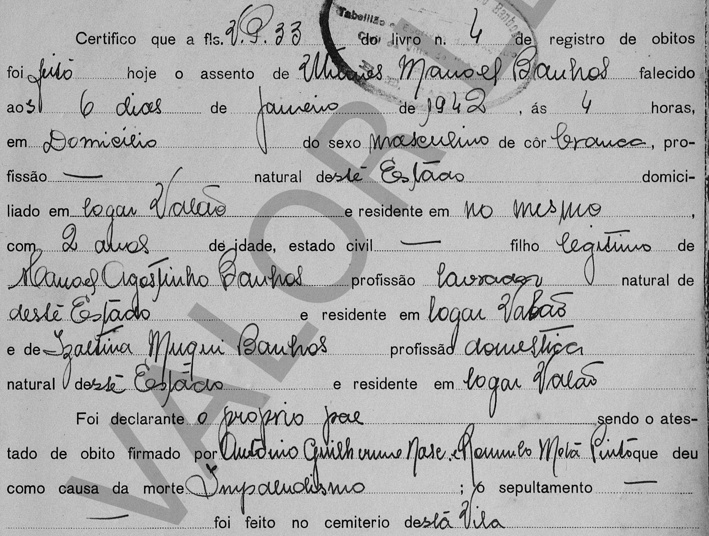 Certifico que a fls. V.P. 33 do livro n. 4 de registro de obitos
foi feito hoje o assento de Manoel Banhos falecido
aos 6 dias de Janeiro de 1942, ás 4 horas,
em Domicilio do sexo masculino de côr branca, pro-
fissão — natural deste Estado domici-
liado em logar Valão e residente em no mesmo,
com 2 anos de idade, estado civil — filho legitimo de
Manoel Agostinho Banhos profissão lavrador natural de
deste Estado e residente em logar Valão
e de Izaltina Muqui Banhos profissão domestica
natural deste Estado e residente em logar Valão
Foi declarante o proprio pae sendo o ates-
tado de obito firmado por Antônio Guilherme e Romulo Mota Pinto que deu
como causa da morte Impaludismo ; o sepultamento —
— foi feito no cemiterio desta Vila
Tabelião
VALOR